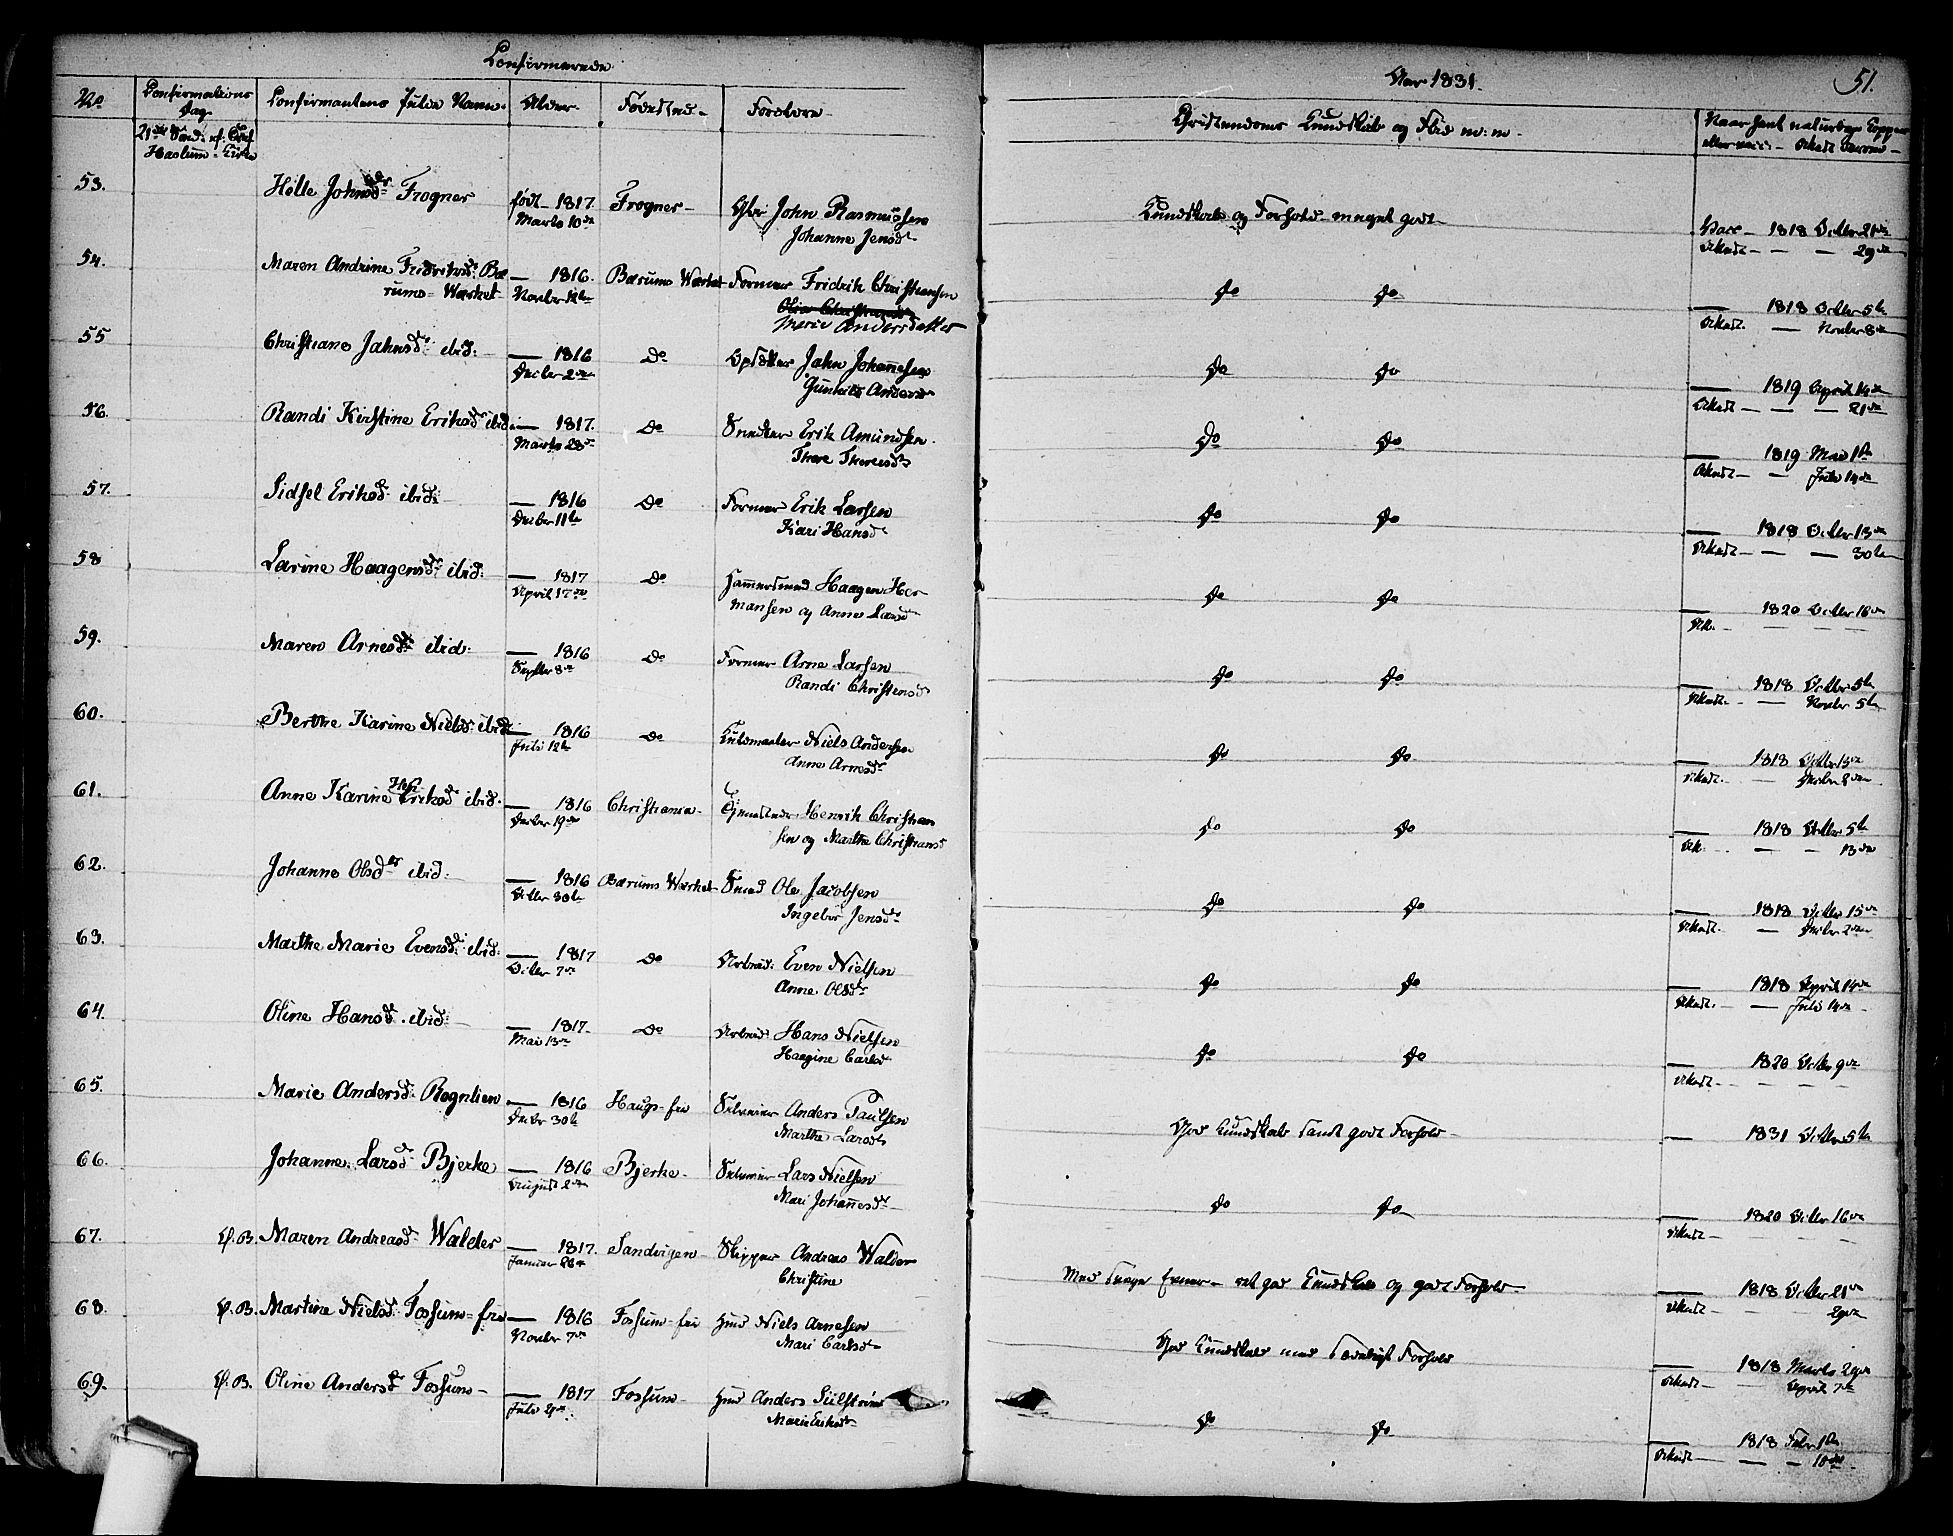 Confirmerede
Aar 1831.
51.
No
Confirmations Dag
Confirmantens fulde Navn.
Alder
Fødested
Forældre
Christendoms Kundskab og Flid m: m.
Naar havt naturlige Kopper
eller vacc: Attest
Haslum Kirke
53.
Helle Johnsdr Frogner
født 1817.
Marts 10de
Frogner
John Rasmussen
Johanne Jensdr
Kundskab og Forhold meget godt
Vacc 1818 Octbr 21de
Attest — — 29de
54.
Maren Andrine Fredriksdr Bæ
rums Værket
— 1816.
Novbr 12te
Bærums Værket
Former Fridrik Christiansen
Marie Andersdatter
Do Do
— 1818 Octbr 5te
Attest. — Novbr 8de
55
Christiane Jahnsdr ibid:
— 1816
Decbr 2den
Do
Opsætter Jahn Johannesen
Gunhild Andersdr
Do Do
— 1819 April 14de
Attest — — 21de
56.
Randi Kirstine Eriksdr ibid.
— 1817.
Marts 28de
Do
Snedker Erik Amundsen
Thore Thoresdr
Do Do
— 1819 Mai 1ste
Attest — Juli 14de
57.
Sidsel Eriksdr ibid:
— 1816
Decbr 11te
Do
Former Erik Larsen
Kari Hansdr
Do Do
— 1818 Octbr 13de
Attest — — 30te
58
Larine Haagensdr ibid:
— 1817
April 17de
Do
Hammersmed Haagen Her
mansen og Anne Larsdr
Do Do
— 1820 Octbr 16de
Att. — — —
59.
Maren Arnesdr ibid:
— 1816
Septbr 8de
Do
Former Arne Larsen
Randi Christensdr
Do Do
— 1818 Octbr 5te
Attest. — Novbr 5te
60.
Berthe Karine Nielsdr ibid
— 1816
Juli 12te
Do
Kulsmaaler Niels Andersen
Anne Arnesdr
Do Do
— 1818 Octbr 13de
Attest. — Decbr 8de
61.
Anne Karine Eriksdr ibid.
— 1816
Decbr 19de
Christiania
Henrik Christian
sen og Marthe Christiansdr
Do Do
— 1818 Octbr 5te
Att. — — 13de
62.
Johanne Olsdr ibid.
— 1816
Octbr 30te
Bærums Værket
Smed Ole Jacobsen
Ingebor Jensdr
Do Do
— 1818 Octbr 15de
Attest. — Decbr 2den
63.
Marthe Marie Evensdr ibid:
— 1817
Octbr 7de
Do
Arbeid: Even Nielsen
Anne Olsdr
Do Do
— 1818 April 14de
Attest. — Juli 14de
64.
Oline Hansdr ibid:
— 1817.
Mai 13de
Do
Arbeid: Hans Nielsen
Haagine Carlsdr
Do Do
— 1820 Octbr 9de
Attest — — —
65.
Marie Andersdr Rognlien
— 1816
Decbr 30te
Haugs-eie
Selveier Anders Paulsen
Marthe Larsdr
God Kundskab samt godt Forhold
— 1831 Octbr 5te
66.
Johanne Larsdr Bjerke
— 1816
August 2den
Bjerke
Selveier Lars Nielsen
Mari Johannesdr
Do Do
— 1820 Octbr 16de
Attest — — —
67.
V. B. Maren Andreasdr Walder
— 1817.
Januar 26de
Sandvigen
Skipper Andreas Walder
Christine
Med svage Evner — ret god Kundskab og godt Forhold
— 1818 Octbr 21de
Attest — — 29de
68.
V. B. Martine Nielsdr Fossum-eie
— 1816
Novbr 7de
Fossum-eie
Huus Niels Arnesen
Mari Carlsdr
God Kundskab med sædeligt Forhold
— 1818 Marts 29de
Attest — April 7de
69.
V. B. Oline Andersdr Fossum
— 1817
Juli 29de
Fossum
Huus Anders
Marie Eriksdr
Do Do
— 1818 Febr 1ste
Attest — — 10de